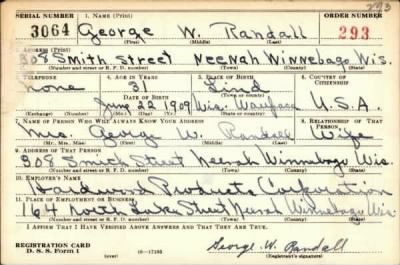 293
SERIAL NUMBER 1. NAME (Print) ORDER NUMBER
3064 George W. Randall 293
(First) (Middle) (Last)
2. ADDRESS (Print)
308 Smith Street Neenah Winnebago Wis.
(Number and street or R. F. D. number) (Town) (County) (State)
3. TELEPHONE 4. AGE IN YEARS 5. PLACE OF BIRTH 6. COUNTRY OF CITIZENSHIP
none 31 Lind
DATE OF BIRTH
June 22 1909 Wis. Waupaca U.S.A.
(Exchange) (Number) (Mo.) (Day) (Yr.) (State or country)
7. NAME OF PERSON WHO WILL ALWAYS KNOW YOUR ADDRESS 8. RELATIONSHIP OF THAT PERSON
Mrs. George W. Randall Wife
(Mr., Mrs., Miss) (First) (Middle) (Last)
9. ADDRESS OF THAT PERSON
308 Smith Street Neenah Winnebago Wis.
(Number and street or R. F. D. number) (Town) (County) (State)
10. EMPLOYER'S NAME
Hardwood Products Corporation
11. PLACE OF EMPLOYMENT OR BUSINESS
164 North Lake Street Neenah Winnebago Wis
(Number and street or R. F. D. number) (Town) (County) (State)
I AFFIRM THAT I HAVE VERIFIED ABOVE ANSWERS AND THAT THEY ARE TRUE.
REGISTRATION CARD
D. S. S. Form 1 (over) 16—17105 George W. Randall
(Registrant's signature)